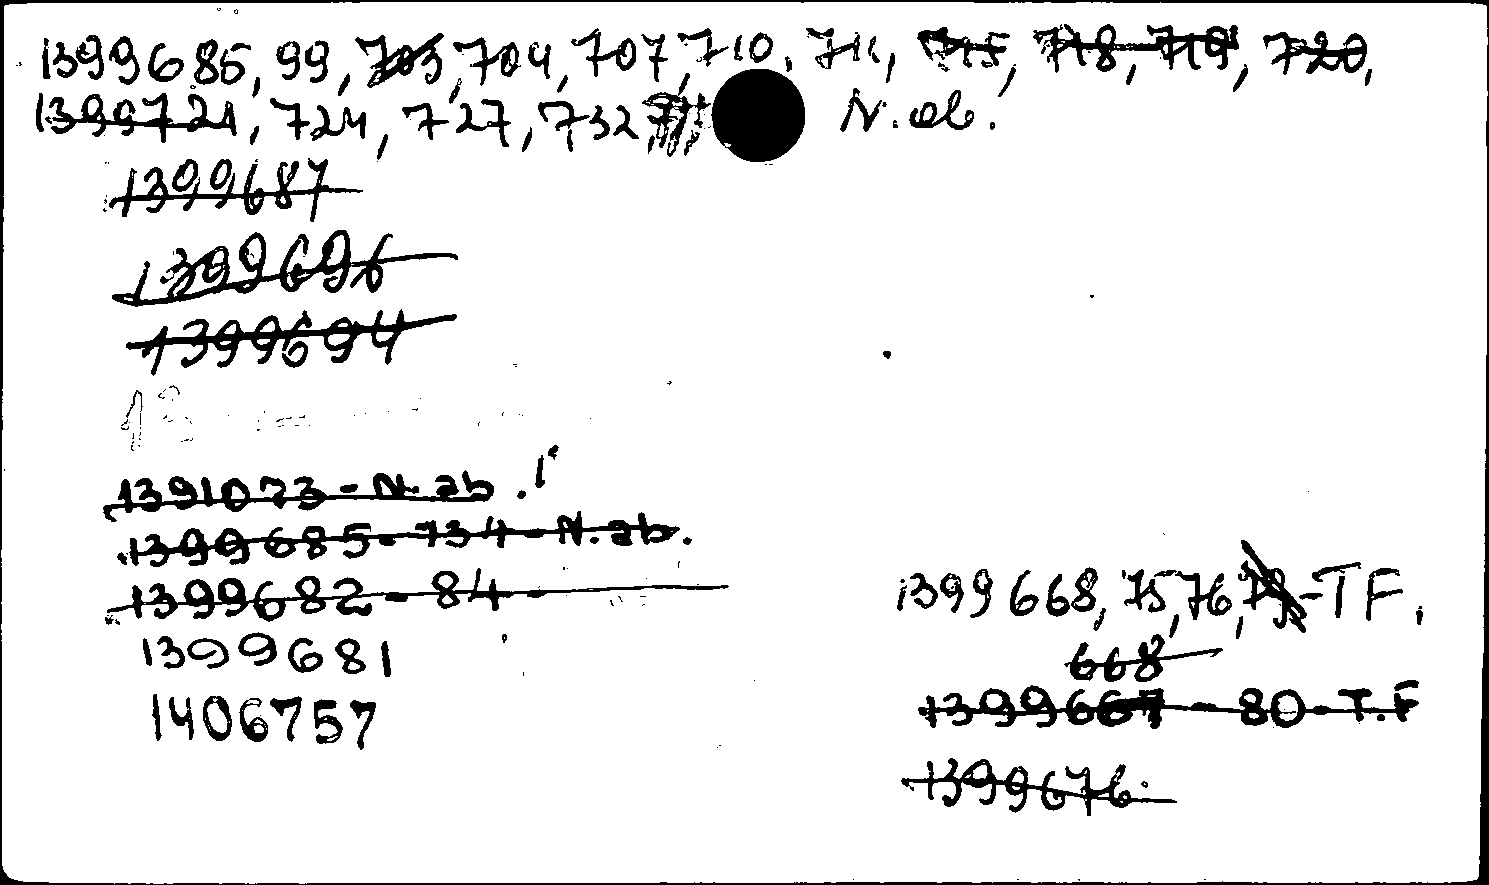 1399685, 99, 703, 704, 707, 710, 711, 715, 718, 719, 720,
1399721, 724, 727, 732 N. ab.
1399687
1399696
1399694
13
1391073 - N. ab.
1399685 - 734 - N. ab.
1399682 - 84 -
1399681
1406757
1399668, 75, 76, - TF.
668
1399667 - 80 - T.F
1399676.